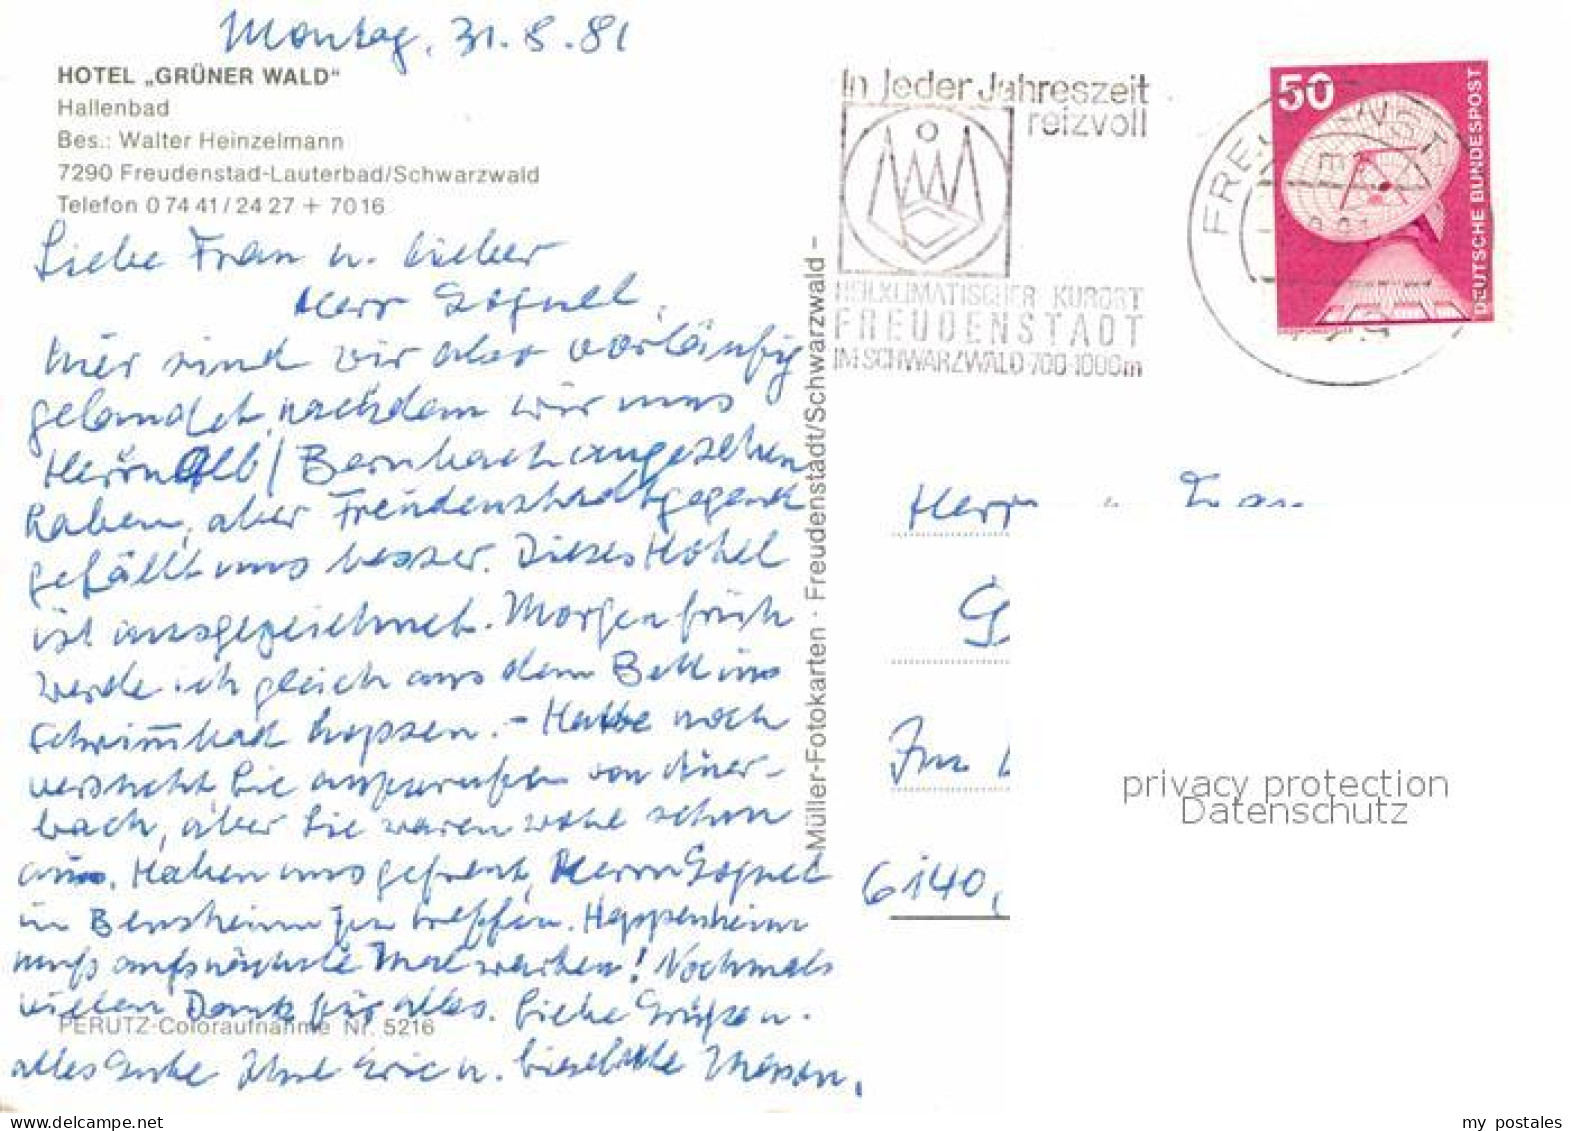 Montag, 31.8.81
HOTEL „GRÜNER WALD“
Hallenbad
Bes.: Walter Heinzelmann
7290 Freudenstad-Lauterbad/Schwarzwald
Telefon 0 74 41 / 24 27 + 70 16
Liebe Frau u. lieber
Herr
hier sind wir also vorläufig
gelandet, nachdem wir uns
Herrnalb / Bernbach angesehen
haben, aber Freudenstadtgegend
gefällt uns besser. Dieses Hotel
ist ausgezeichnet. Morgen früh
werde ich gleich aus dem Bett ins
Schwimmbad hopsen. – Hatte noch
versucht Sie anzurufen von
bach, aber Sie waren wohl schon
aus. Haben uns gefreut, Herrn
in Bensheim zu treffen. Heppenheim
muß aufs nächste Mal warten! Nochmals
vielen Dank für alles. Liebe Grüße u.
alles Gute Ihre u. Lieselotte
PERUTZ-Coloraufnahme Nr. 5216
Müller-Fotokarten · Freudenstadt/Schwarzwald –
In jeder Jahreszeit
reizvoll
HEILKLIMATISCHER KURORT
FREUDENSTADT
IM SCHWARZWALD 700-1000m
50
DEUTSCHE BUNDESPOST
Herrn u. Frau
G
Im
6140,
privacy protection
Datenschutz
my_postales